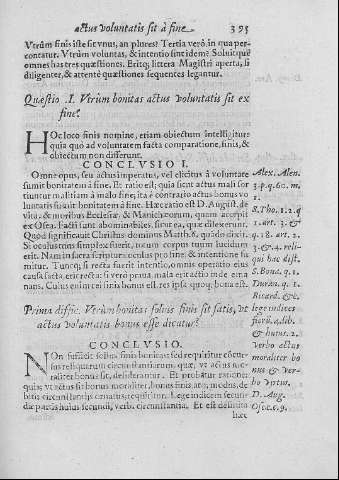 actus voluntatis sit à fine. 395
Vtrùm finis iste sit vnus, an plores? Tertia verò in qua per-
contatur. Vtrùm voluntas, & intentio sint idem? Soluitque
omnes has tres quæstiones. Eritq; littera Magistri aperta, si
diligenter, & attentè quæstiones sequentes legantur.
Quæstio .I. Vtrùm bonitas actus voluntatis sit ex
fine?
HOc loco finis nomine, etiam obiectum intelligitur:
quia quo ad voluntatem facta comparatione, finis, &
obiectum non differunt.
CONCLVSIO I.
Omne opus, seu actus imperatus, vel elicitus à voluntate
sumit bonitatem à fine. Et ratio est; quia sicut actus mali sor
tiuntur malitiam à malo fine, ita è contrario actus bonus vo
luntatis sumit bonitatem à fine. Hæc ratio est D. August. de
vita, & moribus Ecclesiæ, & Manichæorum, quam accepit
ex Osea. Facti sunt abominabiles, sicut ea, quæ dilexerunt.
Quod significauit Christus dominus Matth. 6. quando dixit.
Si oculus tuus simplex fuerit, totum corpus tuum lucidum
erit. Nam in sacra scriptura oculus pro fine, & intentione su
mitur. Tuncq; si recta fuerit intentio, omnis operatio eius
causa facta erit recta: si verò praua, mala erit actio inde ema
nans. Cuius enim rei finis bonus est, res ipsa quoq; bona est.
Alex. Alen.
3. p. q. 60. m.
1.
S. Tho. 1. 2. q
1. art. 3. &
q. 18. art. 2.
3. & 4. reli-
qui hac dist.
S. Bona. q. 1.
Duran. q. 1.
Ricard. &c.
Prima diffic. Vtrùm bonitas solius finis sit satis, vt
actus voluntatis bonus esse dicatur?
CONCLVSIO.
NOn sufficit solius finis bonitas: sed requiritur concur-
sus reliquarum circunstantiarum, quæ, vt actus mo-
raliter bonus sit, desiderantur. Et probatur ratione:
quia; vt actus sit bonus moraliter, bonus finis, ato; modus, de
bitis circunstantijs ornatus, requiritur. Lege indicem secun-
dæ partis huius secundi, verb. circunstantia. Et est definita
hæc
lege indices
&c huius. 2.
verbo actus
moraliter bo
nus & ver-
bo virtus.
D. Aug.
Osee. c. 9.